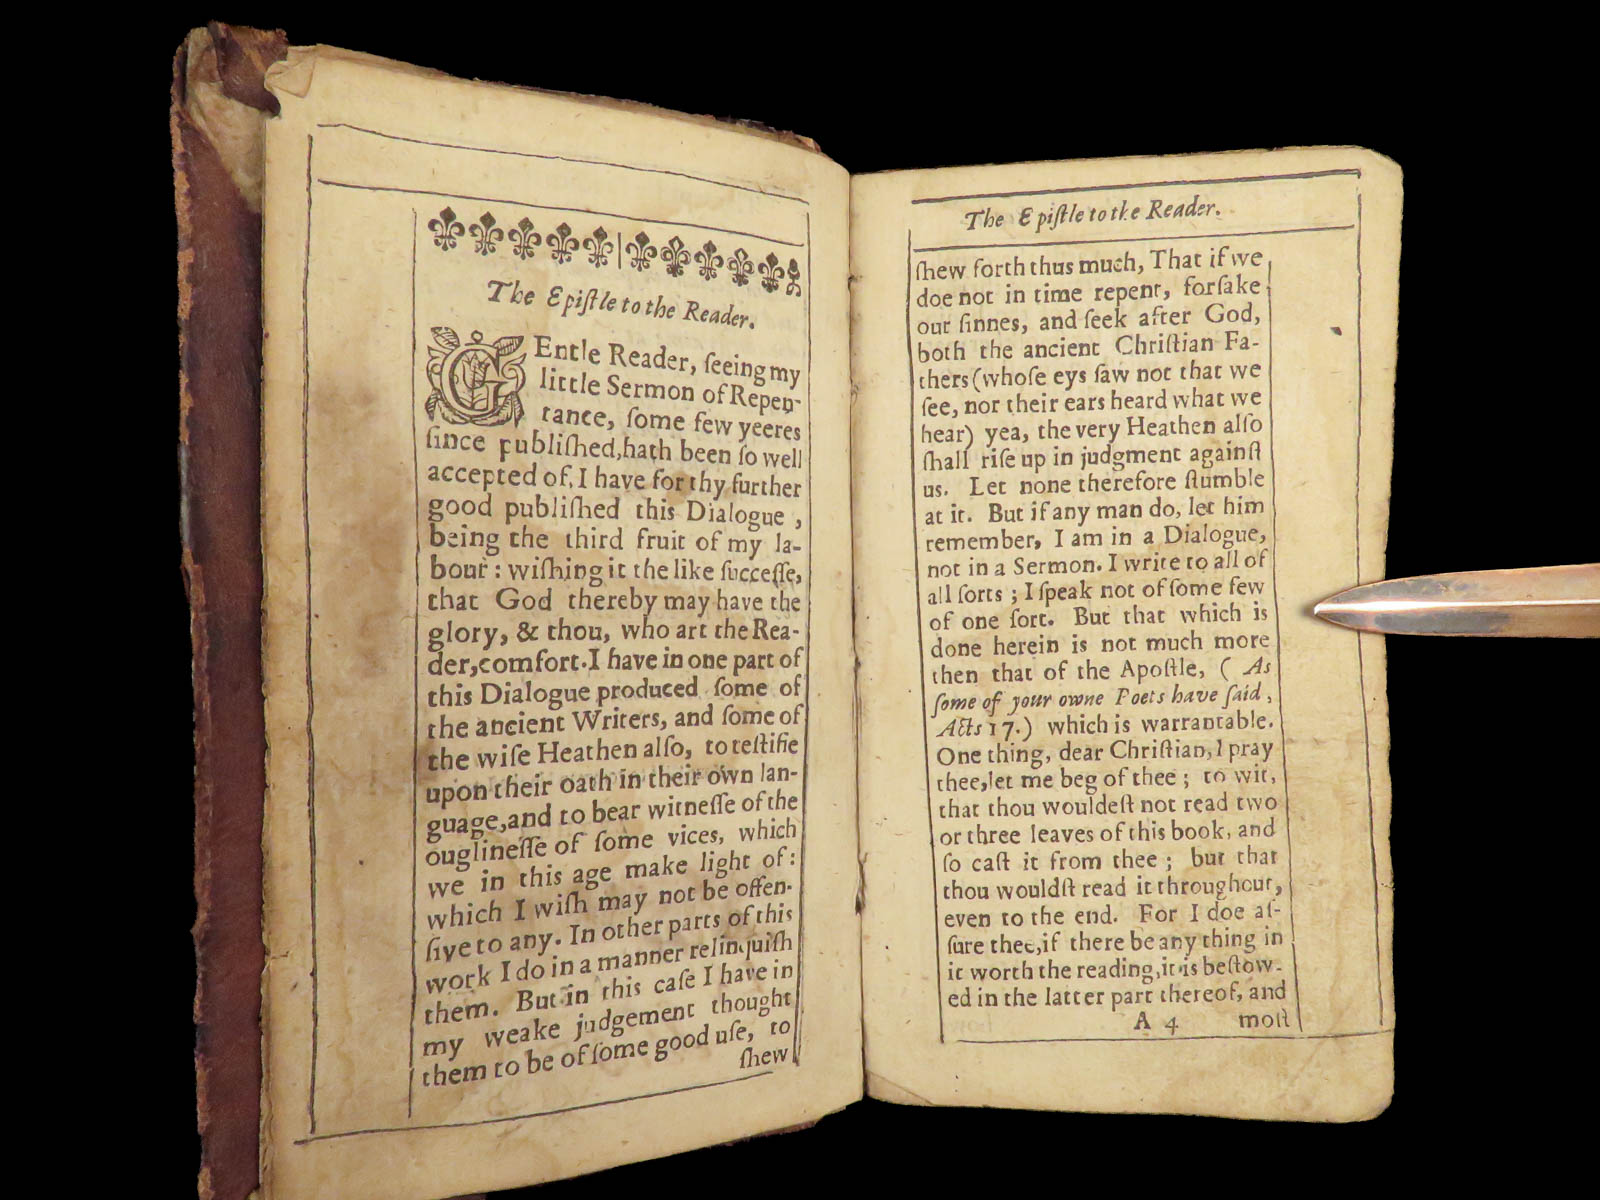 The Epiſtle to the Reader.
GEntle Reader, ſeeing my
little Sermon of Repen-
tance, ſome few yeeres
ſince publiſhed, hath been ſo well
accepted of, I have for thy further
good publiſhed this Dialogue,
being the third fruit of my la-
bour: wiſhing it the like ſucceſſe,
that God thereby may have the
glory, & thou, who art the Rea-
der, comfort. I have in one part of
this Dialogue produced ſome of
the ancient Writers, and ſome of
the wiſe Heathen alſo, to teſtifie
upon their oath in their own lan-
guage, and to bear witneſſe of the
ouglineſſe of ſome vices, which
we in this age make light of:
which I wiſh may not be offen-
ſive to any. In other parts of this
work I do in a manner relinquiſh
them. But in this caſe I have in
my weake judgement thought
them to be of ſome good uſe, to
ſhew
The Epiſtle to the Reader.
ſhew forth thus much, That if we
doe not in time repent, forſake
our ſinnes, and ſeek after God,
both the ancient Chriſtian Fa-
thers (whoſe eys ſaw not that we
ſee, nor their ears heard what we
hear) yea, the very Heathen alſo
ſhall riſe up in judgment againſt
us. Let none therefore ſtumble
at it. But if any man do, let him
remember, I am in a Dialogue,
not in a Sermon. I write to all of
all ſorts; I ſpeak not of ſome few
of one ſort. But that which is
done herein is not much more
then that of the Apoſtle, (As
ſome of your owne Poets have ſaid,
Acts 17.) which is warrantable.
One thing, dear Chriſtian, I pray
thee, let me beg of thee; to wit,
that thou wouldeſt not read two
or three leaves of this book, and
ſo caſt it from thee; but that
thou wouldſt read it throughout,
even to the end. For I doe aſ-
ſure thee, if there be any thing in
it worth the reading, it is beſtow-
ed in the latter part thereof, and
A 4 moſt